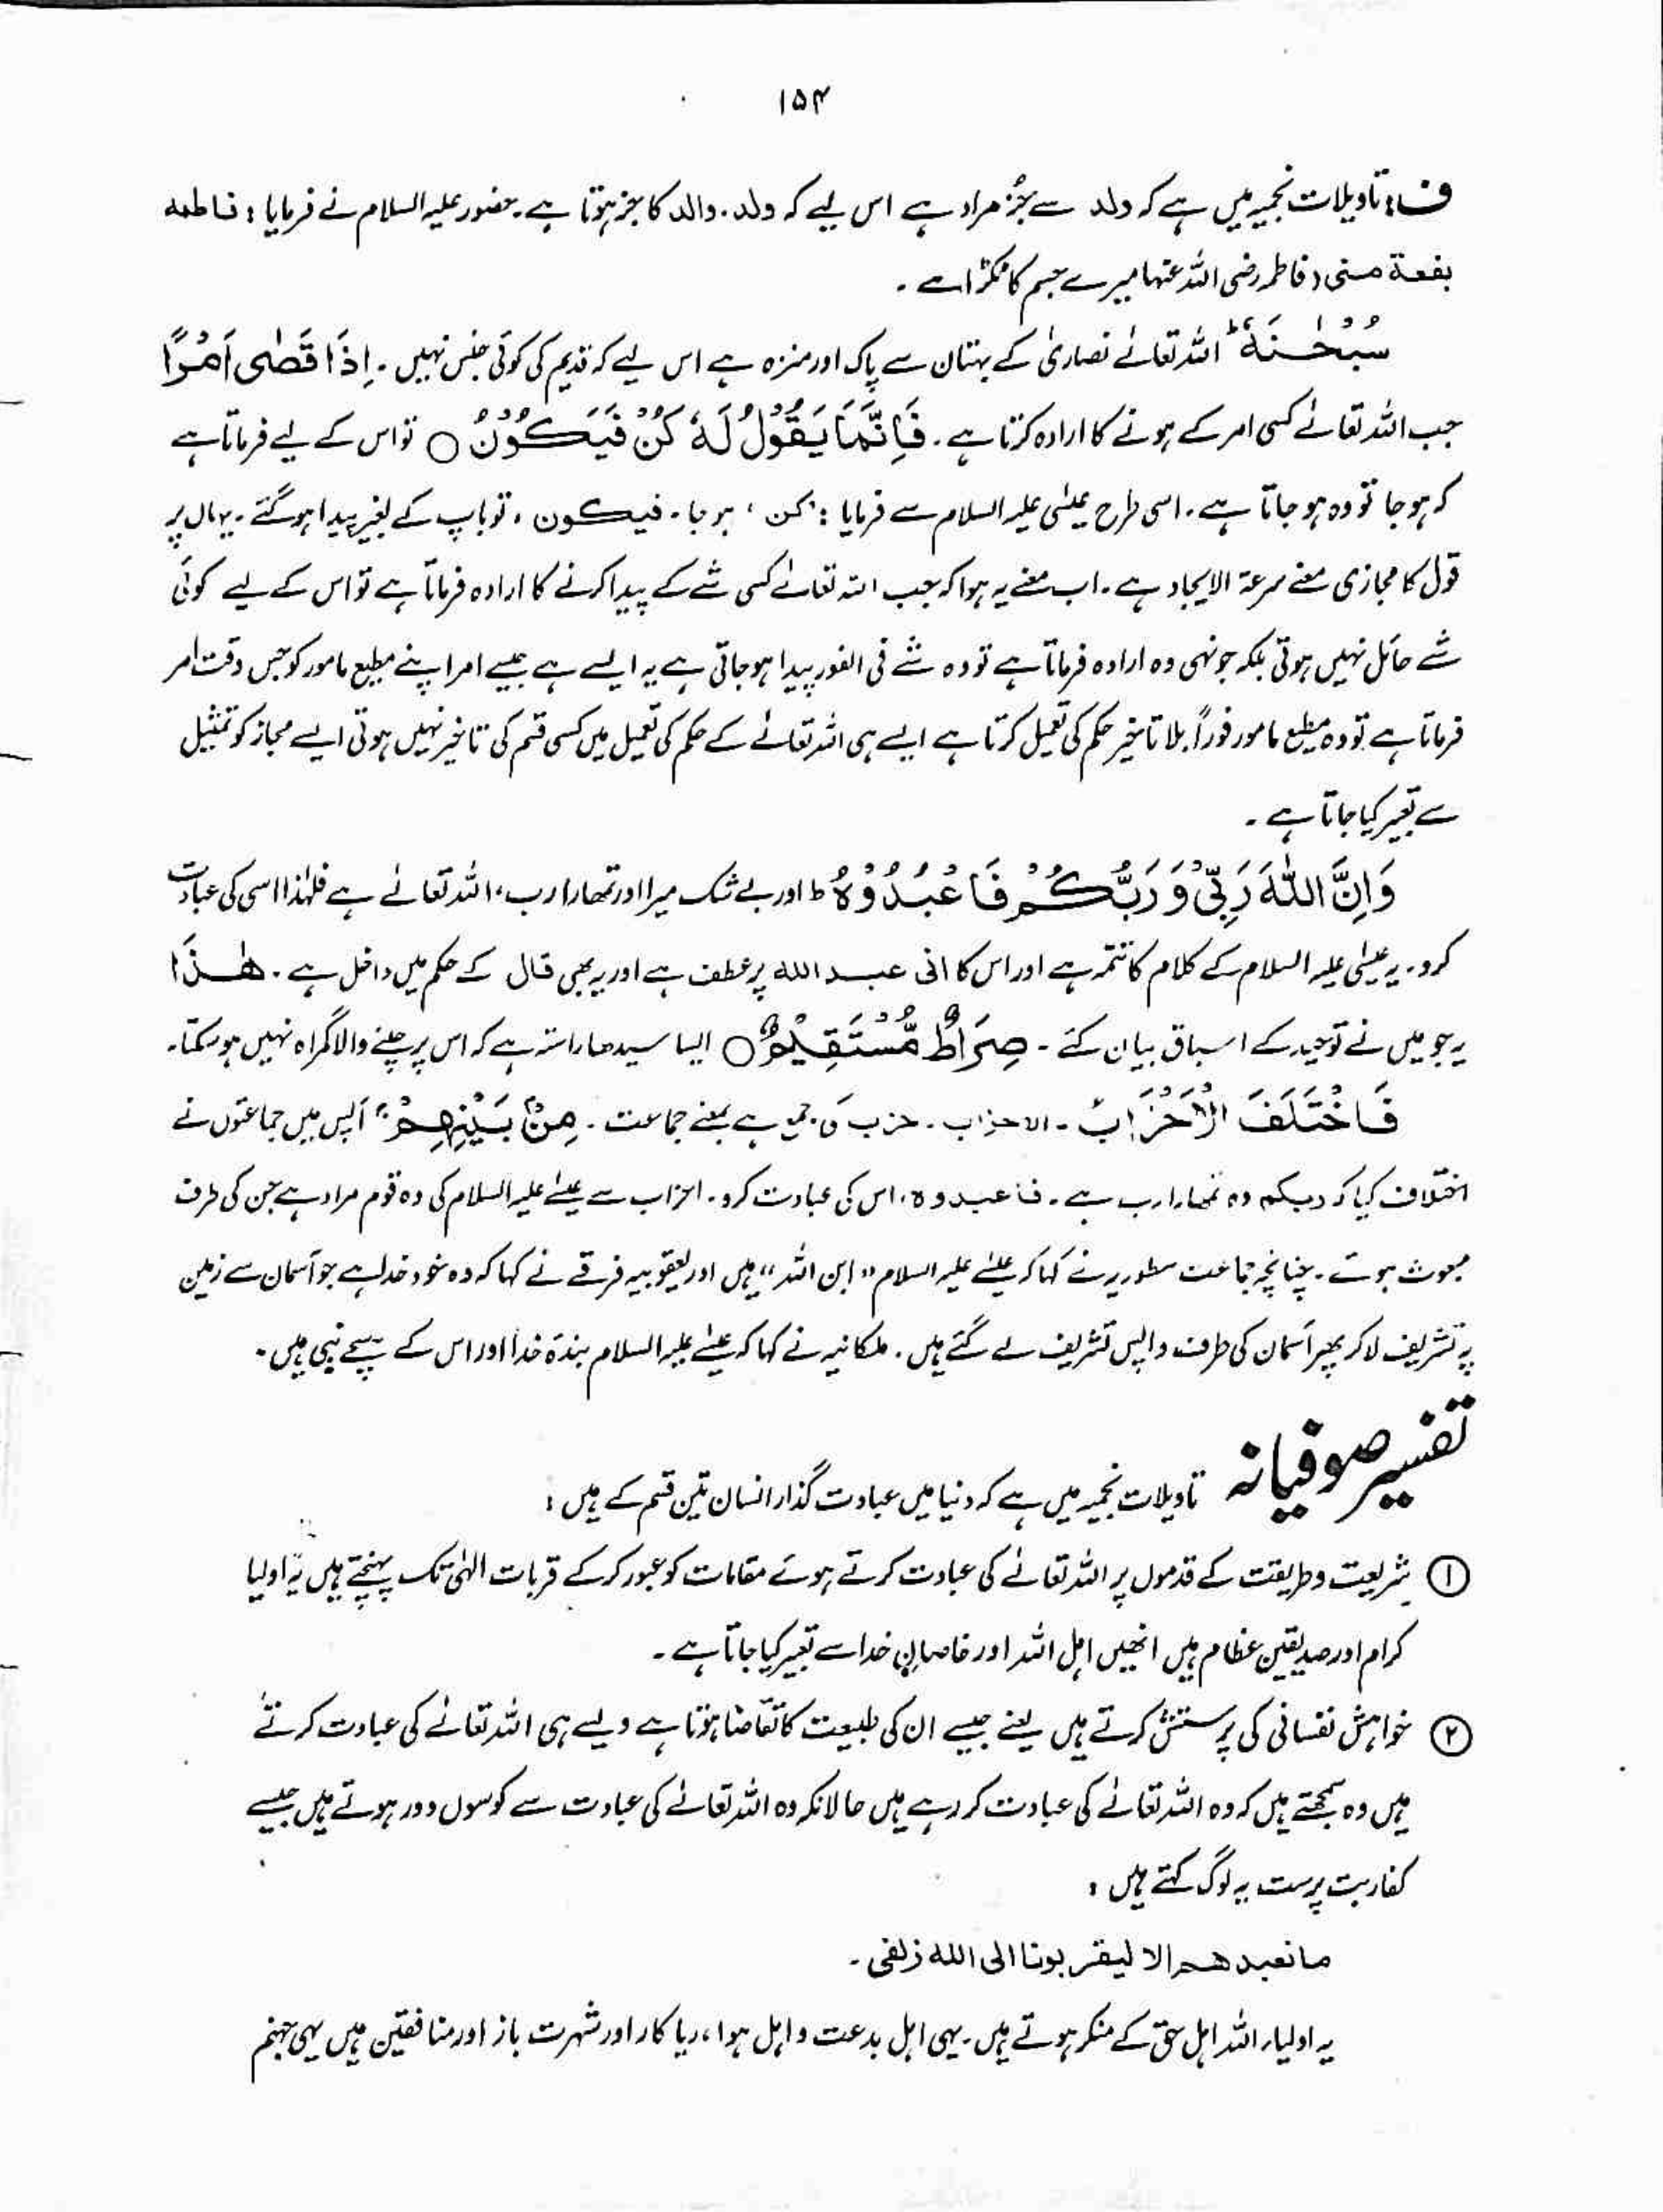 ۱۵۴
ف: تاویلات نجمیہ میں ہے کہ ولد سے جُز مراد ہے اس لیے کہ ولد. والد کا جز ہوتا ہے۔ حضور علیہ السلام نے فرمایا: فاطمہ
بضعۃ منی (فاطمہ رضی اللہ عنہا میرے جسم کا ٹکڑا ہے۔
سُبْحٰنَهٗ ؕ اللہ تعالےٰ نصاریٰ کے بہتان سے پاک اور منزہ ہے اس لیے کہ قدیم کی کوئی جنس نہیں۔ اِذَا قَضٰى اَمْرًا
جب اللہ تعالےٰ کسی امر کے ہونے کا ارادہ کرتا ہے۔ فَاِنَّمَا يَقُوْلُ لَهٗ كُنْ فَيَكُوْنُ ○ تو اس کے لیے فرماتا ہے
کہ ہو جا تو وہ ہو جاتا ہے۔ اسی طرح عیسٰی علیہ السلام سے فرمایا: کن ، ہو جا۔ فیکون ، تو باپ کے بغیر پیدا ہو گئے۔ یہاں پر
قول کا مجازی معنے سرعۃ الایجاد ہے۔ اب معنے یہ ہوا کہ جب اللہ تعالےٰ کسی شے کے پیدا کرنے کا ارادہ فرماتا ہے تو اس کے لیے کوئی
شے حائل نہیں ہوتی بلکہ جونہی وہ ارادہ فرماتا ہے تو وہ شے فی الفور پیدا ہو جاتی ہے یہ ایسے ہے جیسے امر اپنے مطیع مامور کو جس وقت امر
فرماتا ہے تو وہ مطیع مامور فوراً بلا تاخیر حکم کی تعمیل کرتا ہے ایسے ہی اللہ تعالےٰ کے حکم کی تعمیل میں کسی قسم کی تاخیر نہیں ہوتی ایسے مجاز کو تمثیل
سے تعبیر کیا جاتا ہے۔
وَاِنَّ اللّٰهَ رَبِّيْ وَرَبُّكُمْ فَاعْبُدُوْهُ ط اور بے شک میرا اور تمھارا رب، اللہ تعالےٰ ہے فلہٰذا اسی کی عبادت
کرو۔ یہ عیسٰی علیہ السلام کے کلام کا تتمہ ہے اور اس کا انی عبد اللہ پر عطف ہے اور یہ بھی قال کے حکم میں داخل ہے۔ هٰذَا
یہ جو میں نے توحید کے اسباق بیان کئے۔ صِرَاطٌ مُّسْتَقِيْمٌ ○ ایسا سیدھا راستہ ہے کہ اس پر چلنے والا گمراہ نہیں ہو سکتا۔
فَاخْتَلَفَ الْاَحْزَابُ ۔ الاحزاب . حزب کی جمع ہے بمعنے جماعت ۔ مِنْۢ بَيْنِهِمْ ۚ آپس میں جماعتوں نے
اختلاف کیا کہ ربکم وہ تمھارا رب ہے۔ فاعبدوہ، اس کی عبادت کرو۔ احزاب سے عیسٰے علیہ السلام کی وہ قوم مراد ہے جن کی طرف
مبعوث ہوئے۔ چنانچہ جماعت سطوریہ نے کہا کہ عیسٰے علیہ السلام "ابن اللہ" ہیں اور یعقوبیہ فرقے نے کہا کہ وہ خود خدا ہے جو آسمان سے زمین
پہ تشریف لا کر پھر آسمان کی طرف واپس تشریف لے گئے ہیں۔ ملکانیہ نے کہا کہ عیسٰے علیہ السلام بندۂ خدا اور اس کے سچے نبی ہیں۔
تفسیر صوفیانہ تاویلات نجمیہ میں ہے کہ دنیا میں عبادت گذار انسان تین قسم کے ہیں :
① شریعت و طریقت کے قدموں پر اللہ تعالےٰ کی عبادت کرتے ہوئے مقامات کو عبور کر کے قربات الٰہی تک پہنچتے ہیں یہ اولیا
کرام اور صدیقین عظام ہیں انھیں اہل اللہ اور خاصانِ خدا سے تعبیر کیا جاتا ہے۔
② خواہش نفسانی کی پرستش کرتے ہیں یعنے جیسے ان کی طبیعت کا تقاضا ہوتا ہے ویسے ہی اللہ تعالےٰ کی عبادت کرتے
ہیں وہ سمجھتے ہیں کہ وہ اللہ تعالےٰ کی عبادت کر رہے ہیں حالانکہ وہ اللہ تعالےٰ کی عبادت سے کوسوں دور ہوتے ہیں جیسے
کفار بت پرست یہ لوگ کہتے ہیں :
ما نعبدھم الا لیقربونا الی اللہ زلفی۔
یہ اولیاء اللہ اہل حق کے منکر ہوتے ہیں۔ یہی اہل بدعت و اہل ہوا، ریا کار اور شہرت باز اور منافقین ہیں یہی جہنم